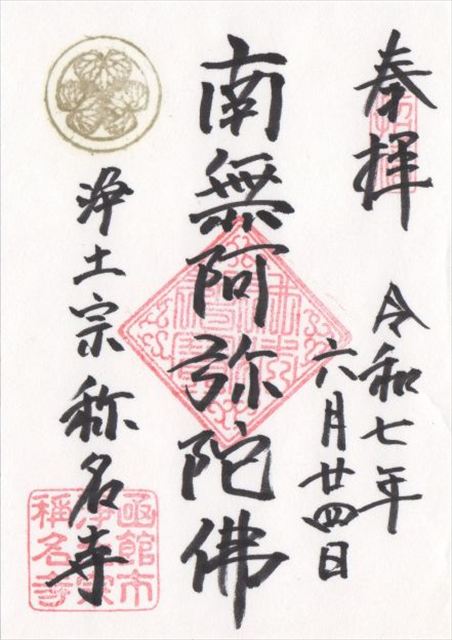 奉拝
令和七年
六月廿四日
南無阿弥陀佛
浄土宗 称名寺
函館市
浄土宗
稱名寺